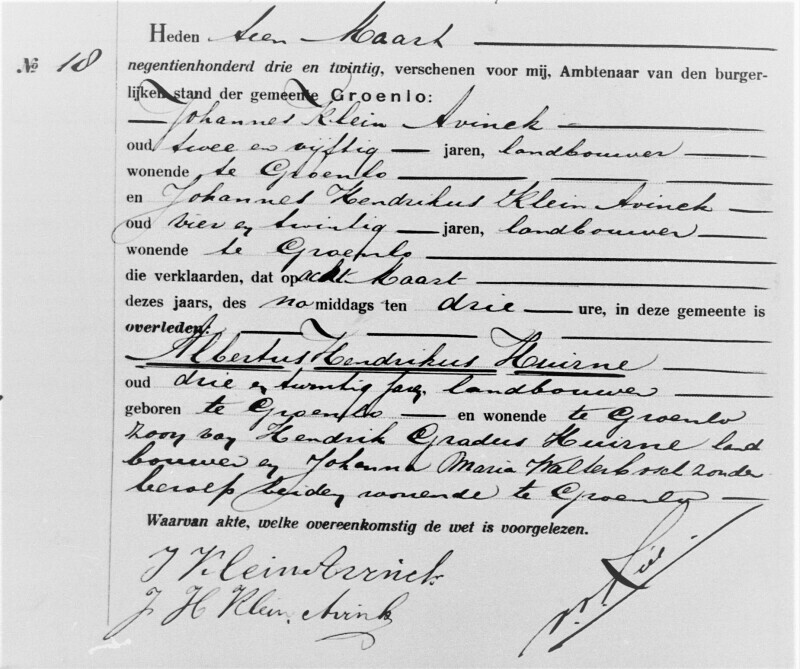 Heden tien Maart
No 18
negentienhonderd drie en twintig, verschenen voor mij, Ambtenaar van den burger-
lijken stand der gemeente Groenlo:
Johannes Klein Avinck
oud twee en vijftig jaren, landbouwer
wonende te Groenlo
en Johannes Hendrikus Klein Avinck
oud vier en twintig jaren, landbouwer
wonende te Groenlo
die verklaarden, dat op acht Maart
dezes jaars, des namiddags ten drie ure, in deze gemeente is
overleden:
Albertus Hendrikus Huirne
oud drie en twintig jaren, landbouwer
geboren te Groenlo en wonende te Groenlo
zoon van Hendrik Gradus Huirne land
bouwer en Johanna Maria Walterbosch zonder
beroep beiden wonende te Groenlo
Waarvan akte, welke overeenkomstig de wet is voorgelezen.
J Klein Avinck
J H Klein Avink